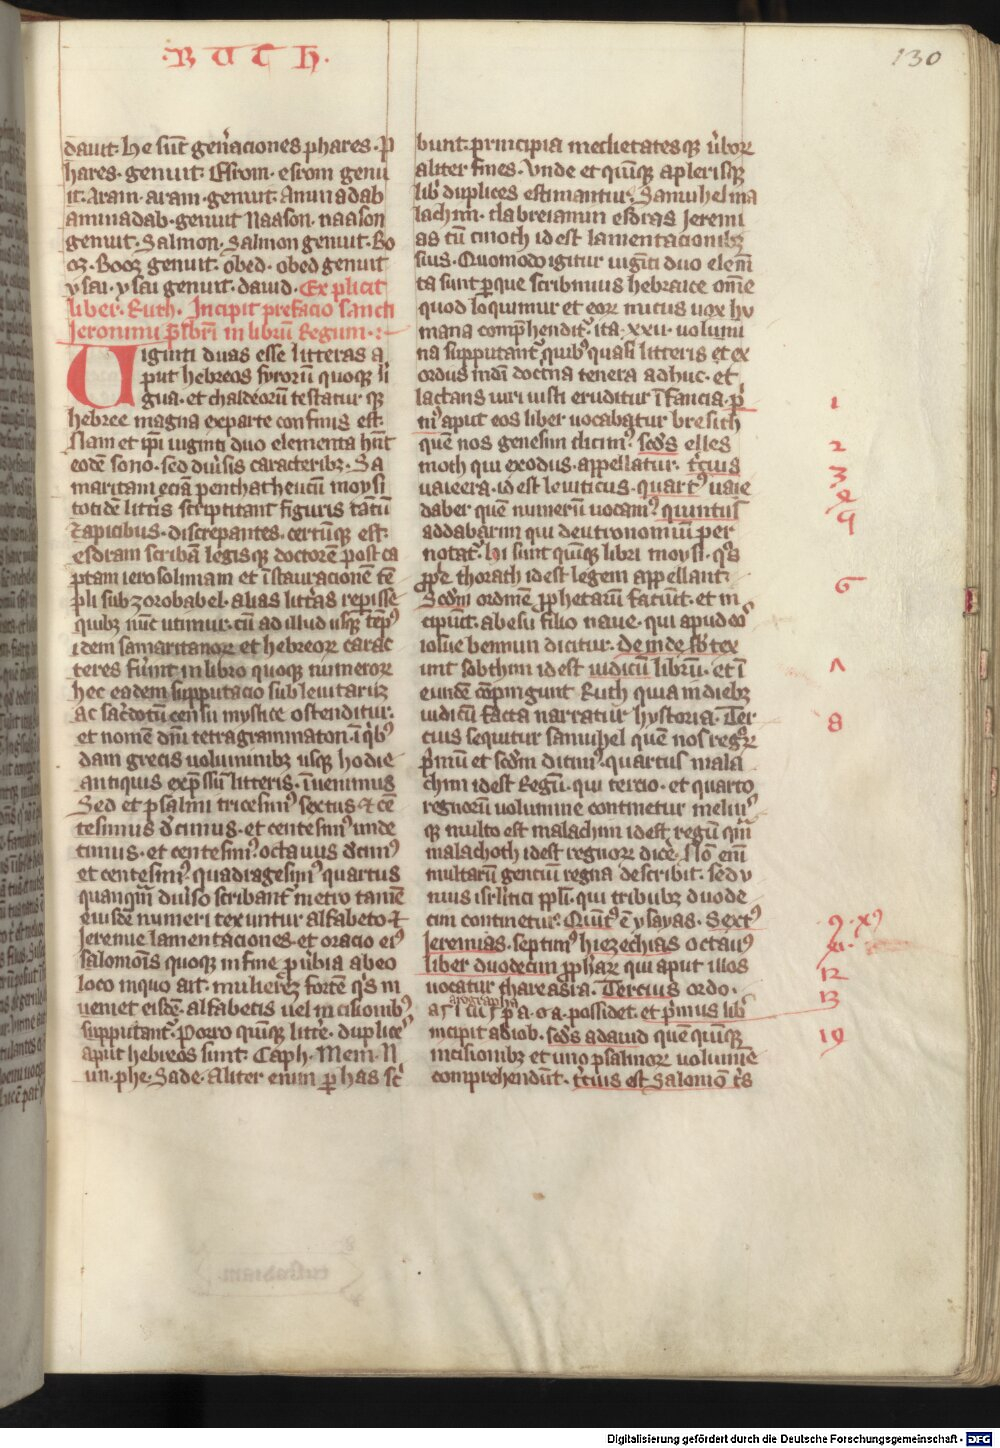 ·R U T H·
130
dauit· he sūt gen̄aciones phares· p
hares· genuit· Esrom· esrom genu
it· aram· aram· genuit· Aminadab
aminadab· genuit Naason· naason
genuit· Salmon· salmon genuit· Bo
oz· Booz genuit· obed· obed genuit
ysai· ysai genuit· dauid· Explicit
liber· Ruth· Incipit prefacio sancti
Jeronimi p̄sbrī in librū Regum·:·
Uiginti duas esse litteras a
put hebreos syrorū quoqꝫ li
gua· et chaldeorū testatur qꝫ
hebree magna exparte confinis est·
Nam et ipī uiginti duo elementa hn̄t
eodē sono· sed diūsis caracteribꝫ· Sa
maritani eciā penthatheucū moysi
totidē littīs scriptitant figuris tātū
⁊ apicibus· discrepantes· certūqꝫ est·
esdram scribā legisqꝫ doctorē post ca
ptam ierosolimam et īstauracionē tē
pli sub zorobabel· alias littās repisse
quibꝫ nūc utimur· cū ad illud usqꝫ tēpꝰ
idem samaritanoꝝ et hebreoꝝ carac
teres fuīnt in libro quoqꝫ numeroꝝ
hec eadem supputacio sub leuitarūꝫ
ac sac̄dotū censu mystice ostenditur·
et nomē dn̄i tetragrammaton· ī qⁱbꝰ
dam grecis uoluminibꝫ usqꝫ hodie
antiquis exp̄ssū litteris· īuenimus
Sed et psalmi tricesimꝰ sextus ⁊ cē
tesimus dꝰcimus· et centesimꝰ unde
cimus· et centesimꝰ· octauus dꝰcimꝰ
et centesimꝰ· quadragesimꝰ quartus
quanquā diuīso scribantꝰ metro tamē
eiusdē numeri texuntur alfabeto ⁊
Jeremie lamentaciones· et oracio eiꝰ
salomōis quoqꝫ in fine ꝓuībia abeo
loco in quo ait· mulierēꝫ fortē qⁱs in
ueniet eisdē· alfabetis uel incisionibꝰ
supputantꝰ· Porro quīqꝫ litte· duplicēˢ
aput hebreos sunt· Caph· Mem· N
un· phe· Sade· Aliter enim ꝑ has sc̄
bunt· principia medietatesqꝫ ūboꝝ
aliter fines· Vnde et quīqꝫ a plerisqꝫ
libꝰ duplices estimantur· Samuhel ma
lachim· dabreiamin esdras Jeremi
as cū cinoth id est lamentacionibꝫ
suis· Quomodo igitur uiginti duo elem̄
ta sunt ꝑ que scribimus hebraice om̄e
quod loquimur et eoꝝ inicus uox hu
mana comp̄henditꝰ· ita· xxii· uolumi
na supputantꝰ quibꝰ quasi litteris et ex
ordiis indī doctīna tenera adhuc· et
lactans uiri iusti eruditur īfancia· p̄
mꝰ aput eos liber uocabatur bresith
quē nos genesim dicimꝰ· sc̄ds elles
moth qui exodus· appellatur· t̄cius
uaiecra· id est leuiticus· quartꝰ uaie
daber quē numerū uocamꝰ· quintus
addabarim qui deutronomiū per
notatꝰ· hi sunt quīqꝫ libri moysi· qⁱs
ꝓpe thorath id est legem appellant·
Scd̄m ordinē ꝓphetarū faciūt· et in
cipiūt· ab esu filio naue· qui apud eoˢ
iosue bennun dicitur· deinde sb̄tex
unt sobthim id est iudicū librū· et ī
eundē cōpingunt Ruth quia in diebꝫ
iudicū facta narratur hystoria· Ter
cius sequitur samuhel quē nos regūꝝ
p̄mū et scd̄m dicimꝰ· quartus mala
chim id est Regū· qui tercio· et quarto
regnorū uolumine continetur meliuˢ
qꝫ multo est malachim id est regū qm̄
malachoth id est regnoꝝ dicē· Nō enī
multarū genciū regna describit· sed y
nius isrlitici ppl̄i· qui tribubꝫ duode
cim continetur· Quīt ꝰ ē ysayas· Sextꝰ
Jeremias· septimꝰ hiezechias octauꝰ
liber duodecim ꝓphaꝝ qui aput illos
uocatur thareasra· Tercius ordo·
arographa
as possidet· et p̄mus libꝰ
incipit ad iob· sc̄ds adauid quē quīqꝫ
incisionibꝫ et uno psalmoꝝ uoluminē
comprehendūt· t̄cius est Salomō t̄s
1
2
3
4
6
8
12
13
Digitalisierung gefördert durch die Deutsche Forschungsgemeinschaft · DFG